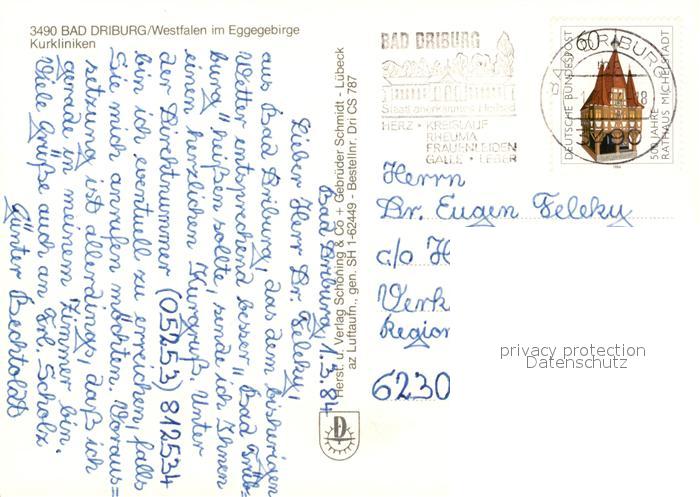 3490 BAD DRIBURG/Westfalen im Eggegebirge
Kurkliniken
Bad Driburg, 1.5.84
Lieber Herr Dr. Feleky,
aus Bad Driburg, das dem bisherigen
Wetter entsprechend besser „Bad Trüb=
burg" heißen sollte, sende ich Ihnen
einen herzlichen Kurgruß. Unter
der Direktnummer (05253) 812534
bin ich eventuell zu erreichen, falls
Sie mich anrufen möchten. Voraus=
setzung ist allerdings, daß ich
gerade in meinem Zimmer bin.
Viele Grüße auch an Frl. Scholz
Günter Bechtoldt
Herst. u. Verlag Schöning & Co + Gebrüder Schmidt - Lübeck
az Luftaufn., gen. SH 1-62449 - Bestellnr. Dri CS 787
BAD DRIBURG
Staatl. anerkanntes Heilbad
HERZ · KREISLAUF
RHEUMA
FRAUENLEIDEN
GALLE · LEBER
BAD DRIBURG
3490
60
DEUTSCHE BUNDESPOST
500 JAHRE
RATHAUS MICHELSTADT
1984
Herrn
Dr. Eugen Feleky
c/o H
Werk
Region
6230
privacy protection
Datenschutz